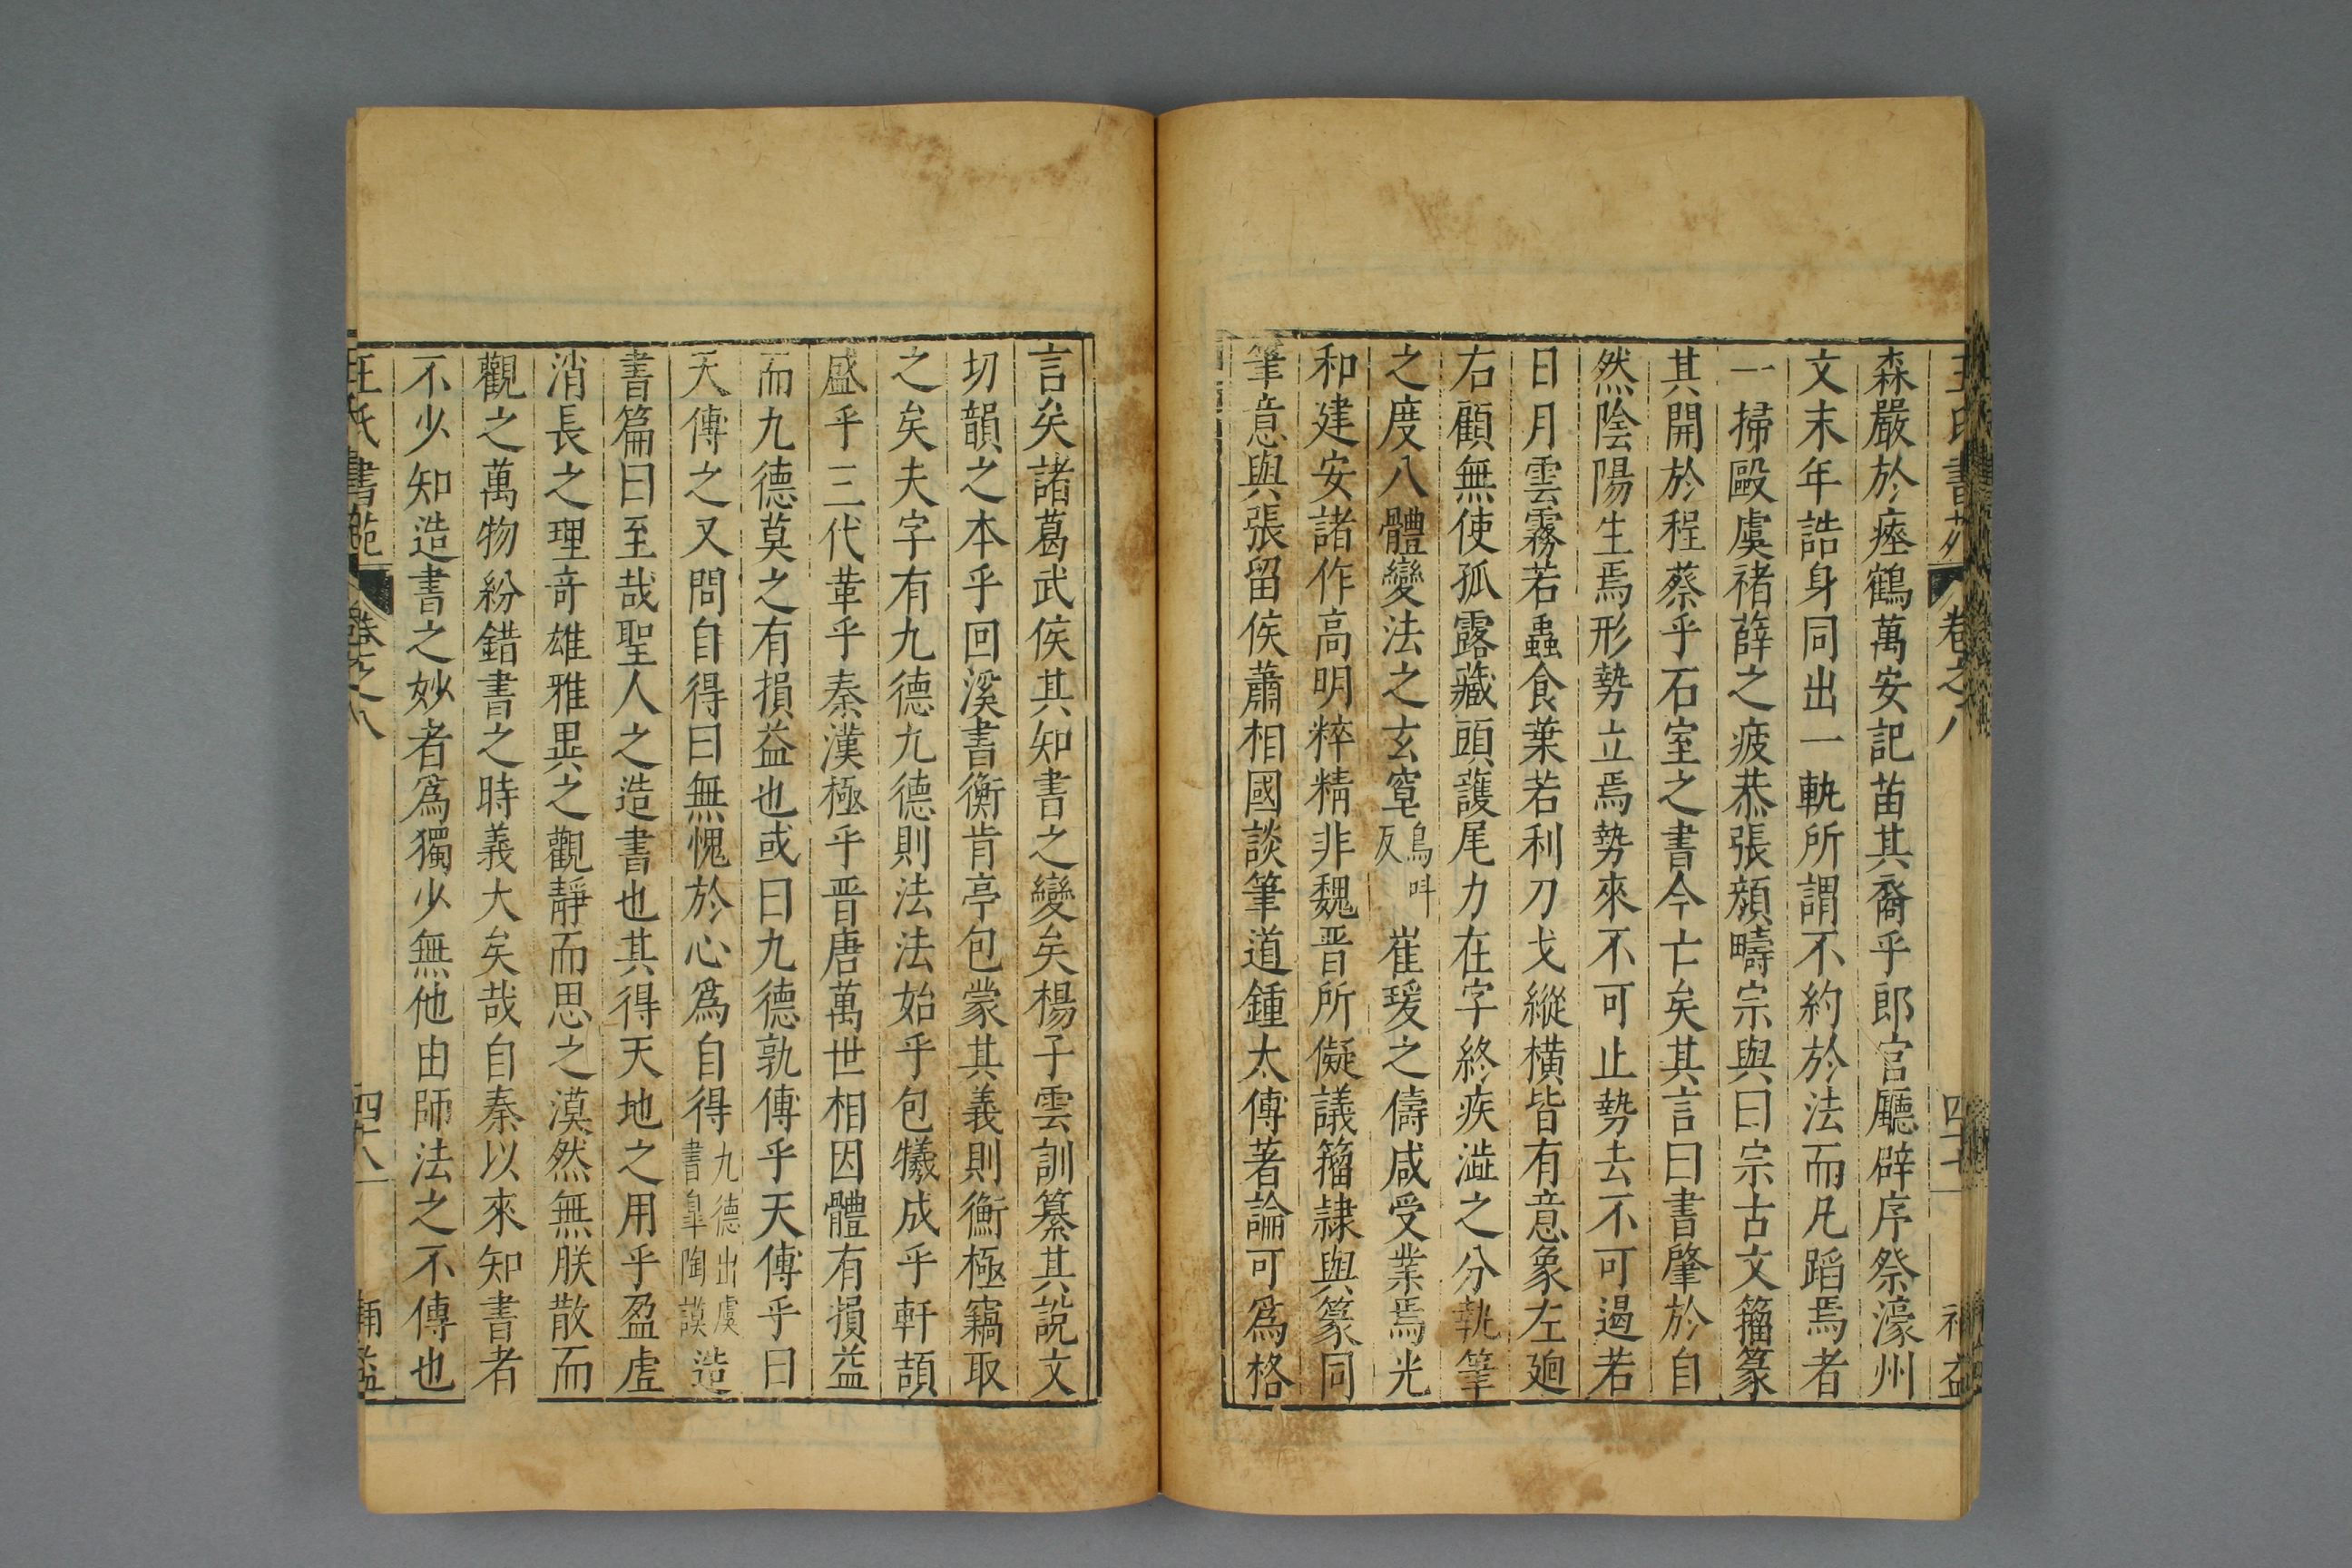 王氏書苑 卷之八 四十七 補益
森嚴於瘞鶴萬安記苗其裔乎郎官廳壁序祭濠州
文末年誥身同出一軌所謂不約於法而凡蹈焉者
一掃毆虞褚薛之疲恭張顏疇宗與曰宗古文籀篆
其開於程蔡乎石室之書今亡矣其言曰書肇於自
然陰陽生焉形勢立焉勢來不可止勢去不可遏若
日月雲霧若蟲食葉若利刀戈縱橫皆有意象左廻
右顧無使孤露藏頭護尾力在字終疾澁之分執筆
之度八體變法之玄窔鳥呌反崔瑗之儔咸受業焉光
和建安諸作高明粹精非魏晋所儗議籀隷與篆同
筆意與張留侯蕭相國談筆道鍾太傅著論可爲格
言矣諸葛武侯其知書之變矣楊子雲訓纂其説文
切韻之本乎回溪書衡肯亭包蒙其義則衡極竊取
之矣夫字有九德九德則法法始乎包犧成乎軒頡
盛乎三代革乎秦漢極乎晋唐萬世相因體有損益
而九德莫之有損益也或曰九德孰傳乎天傳乎曰
天傳之又問自得曰無愧於心爲自得九德出虞書臯陶謨造
書篇曰至哉聖人之造書也其得天地之用乎盈虛
消長之理竒雄雅異之觀靜而思之漠然無朕散而
觀之萬物紛錯書之時義大矣哉自秦以來知書者
不少知造書之妙者爲獨少無他由師法之不傳也
王氏書苑 卷之八 四十八 補益